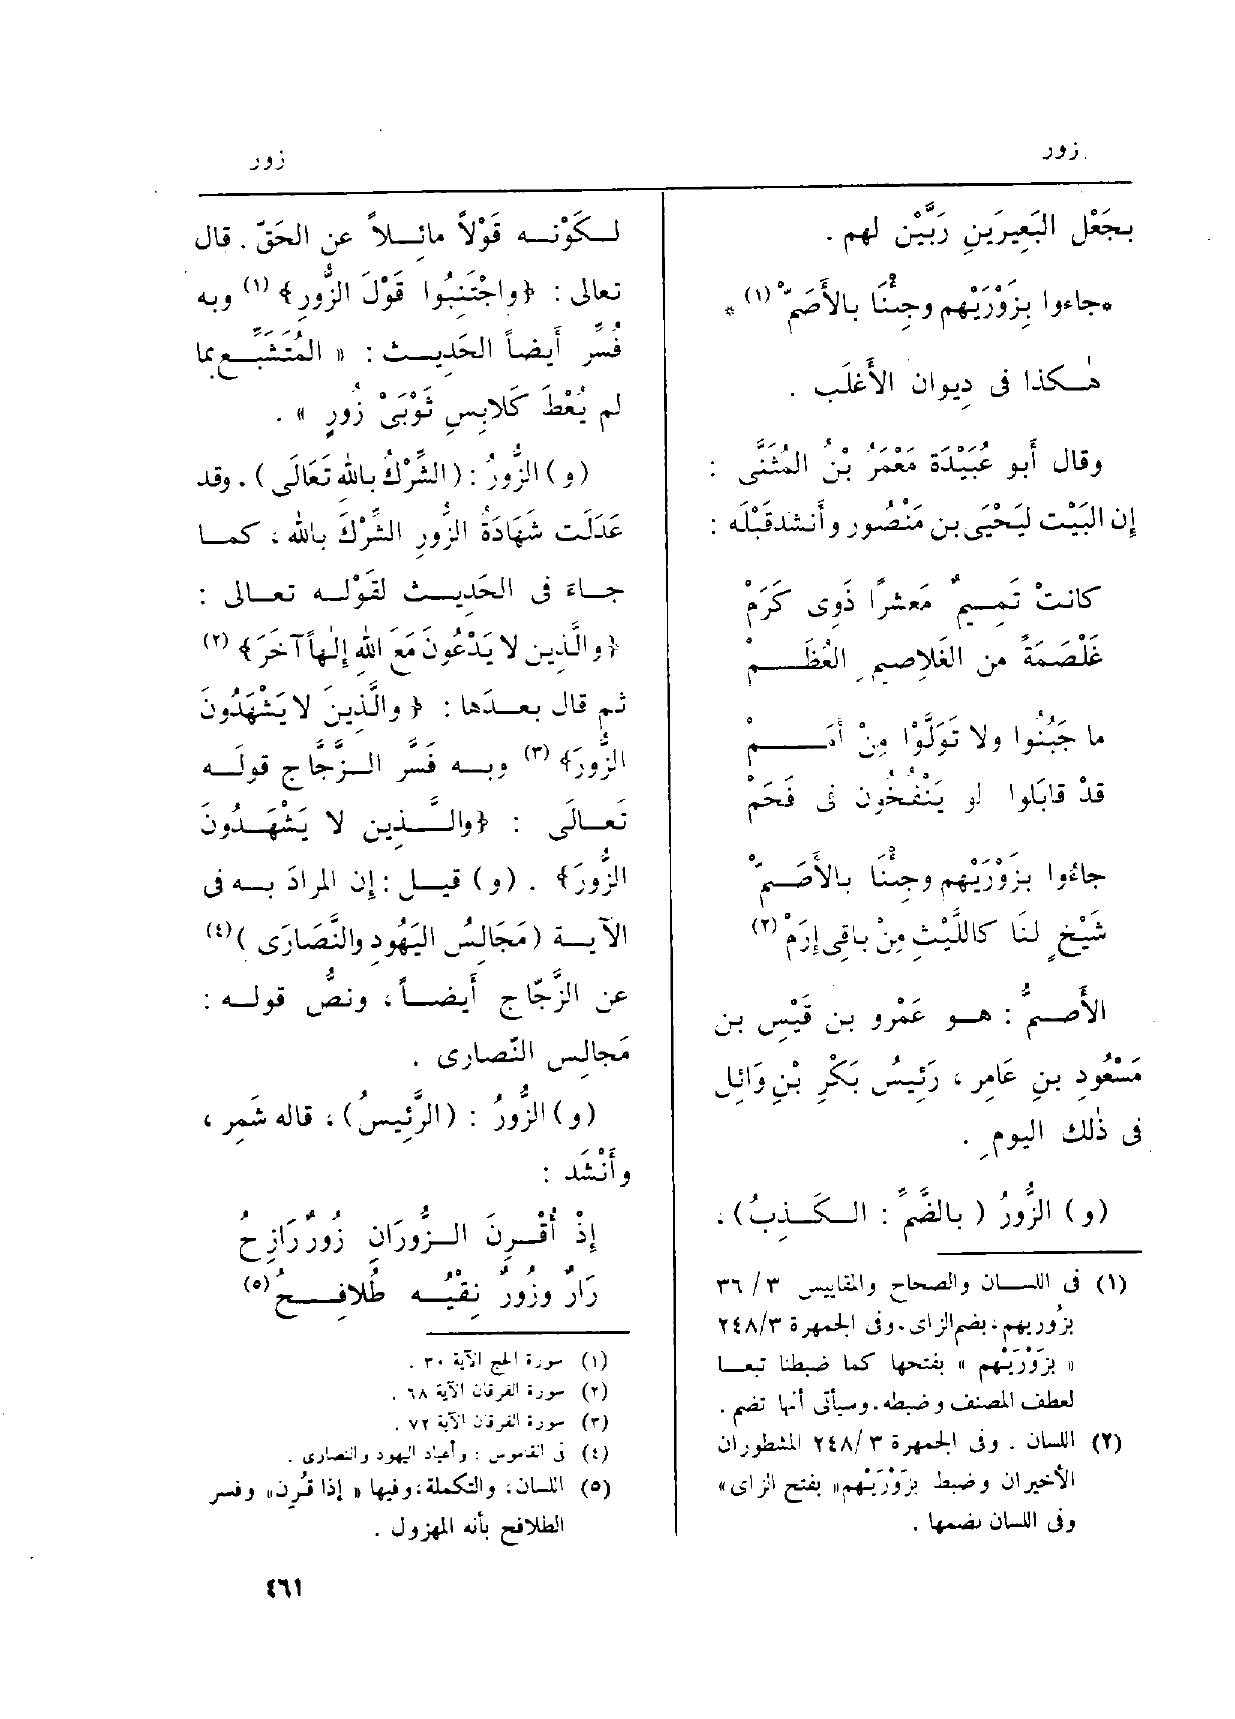 زور
زور
بجَعْل البَعِيرَينِ رَبَّيْنِ لهم .
*جاءوا بِزَوْرَيْهِم وجِئْنَا بالأَصَمّْ (١) *
هٰكذا فى دِيوان الأَغلَب .
وقال أَبو عُبَيْدَة مَعْمَرُ بْنُ المُثَنَّى :
إن البَيْت ليَحْيَى بن مَنْصُور وأَنشد قَبْلَه :
كانتْ تَمِيمٌ مَعشرًا ذَوِى كَرَمْ
غَلْصَمَةً من الغَلاصِيم العُظَمْ
ما جَبُنُوا ولا تَوَلَّوْا مِنْ أَمَمْ
قدْ قابَلوا لو يَنْفُخُون فى فَحَمْ
جاءُوا بزَوْرَيْهم وجِئْنَا بالأَصَمّْ
شَيْخٍ لنَا كاللَّيْثِ مِنْ باقِى إِرَمْ (٢)
الأَصمُّ : هو عَمْرو بن قَيْسِ بن
مَسْعُودِ بنِ عَامِرٍ ، رَئِيسُ بَكْرِ بْنِ وَائلٍ
فى ذٰلك اليومِ .
(و) الزُّورُ ( بالضَّمِّ : الكَذِبُ) ،
(١) فى اللسان والصحاح والمقاييس ٣ / ٣٦
بزُوريهم ، بضم الزاى . وفى الجمهرة ٣/ ٢٤٨
« بزَوْرَيْهم » بفتحها كما ضبطنا تبعا
لعطف المصنف وضبطه . وسيأتى أنها تضم .
(٢) اللسان . وفى الجمهرة ٣ /٢٤٨ المشطوران
الأخيران وضبط بزَوْرَيْهم» بفتح الزاى»
وفى اللسان بضمها .
لكَوْنه قَوْلاً مائِلاً عن الحَقّ . قال
تعالى : ﴿واجْتَنِبُوا قَوْلَ الزُّورِ﴾ (١) وبه
فُسِّر أَيضاً الحَدِيث : « المُتَشَبِّع بما
لم يُعْطَ كَلابِسِ ثَوْبَىْ زُورٍ » .
(و) الزُّورُ : (الشِّرْكُ باللّٰه تَعَالَى) . وقد
عَدَلَت شَهَادَةُ الزُّورِ الشِّرْكَ باللّٰه ، كما
جاءَ فى الحَدِيث لقَوْله تعالى :
﴿والَّذِين لا يَدْعُونَ مَعَ اللّٰه إِلٰهاً آخَرَ﴾ (٢)
ثم قال بعدَها : ﴿ والَّذِينَ لا يَشْهَدُونَ
الزُّورَ﴾ (٣) وبه فَسَّر الزَّجَّاج قولَه
تَعالَى : ﴿والَّذِين لا يَشْهَدُونَ
الزُّورَ﴾ . (و) قيل : إن المرادَ به فى
الآية (مَجَالِسُ اليَهُودِ والنَّصَارَى ) (٤)
عن الزَّجّاج أَيضاً ، ونصُّ قوله :
مَجالِس النَّصارى .
(و) الزُّورُ : (الرَّئِيسُ) ، قاله شَمِر ،
وأَنْشَد :
إِذْ أُقْرِنَ الزُّورَانِ زُورٌ رَازِحُ
رَارٌ وزُورٌ نِقْيُه طُلَافِحُ (٥)
(١) سورة الحج الآية ٣٠ .
(٢) سورة الفرقان الآية ٦٨ .
(٣) سورة الفرقان الآية ٧٢ .
(٤) فى القاموس : وأعياد اليهود والنصارى .
(٥) اللسان ، والتكملة ، وفيها « إذا قُرِن» وفسر
الطلافح بأنه المهزول .
٤٦١